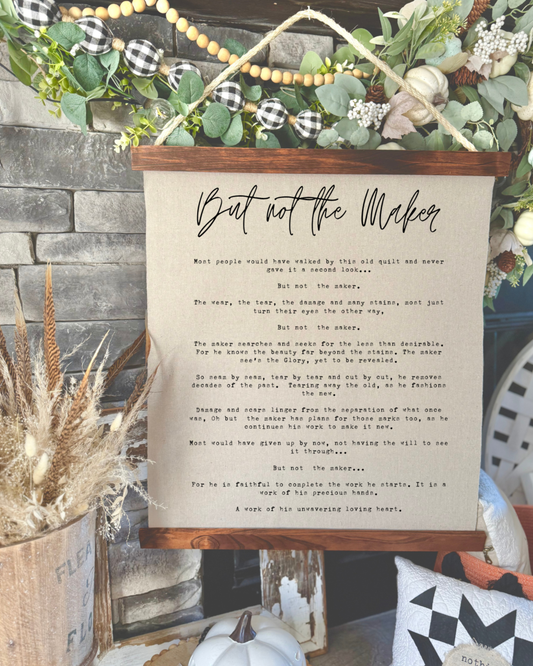 But not the Maker
Most people would have walked by this old quilt and never
gave it a second look...
But not the maker.
The wear, the tear, the damage and many stains, most just
turn their eyes the other way,
But not the maker.
The maker searches and seeks for the less than desirable.
For he knows the beauty far beyond the stains. The maker
see's the Glory, yet to be revealed.
So seam by seam, tear by tear and cut by cut, he removes
decades of the past. Tearing away the old, as he fashions
the new.
Damage and scars linger from the separation of what once
was, Oh but the maker has plans for those marks too, as he
continues his work to make it new.
Most would have given up by now, not having the will to see
it through...
But not the maker...
For he is faithful to complete the work he starts. It is a
work of his precious hands.
A work of his unwavering loving heart.
FLEA